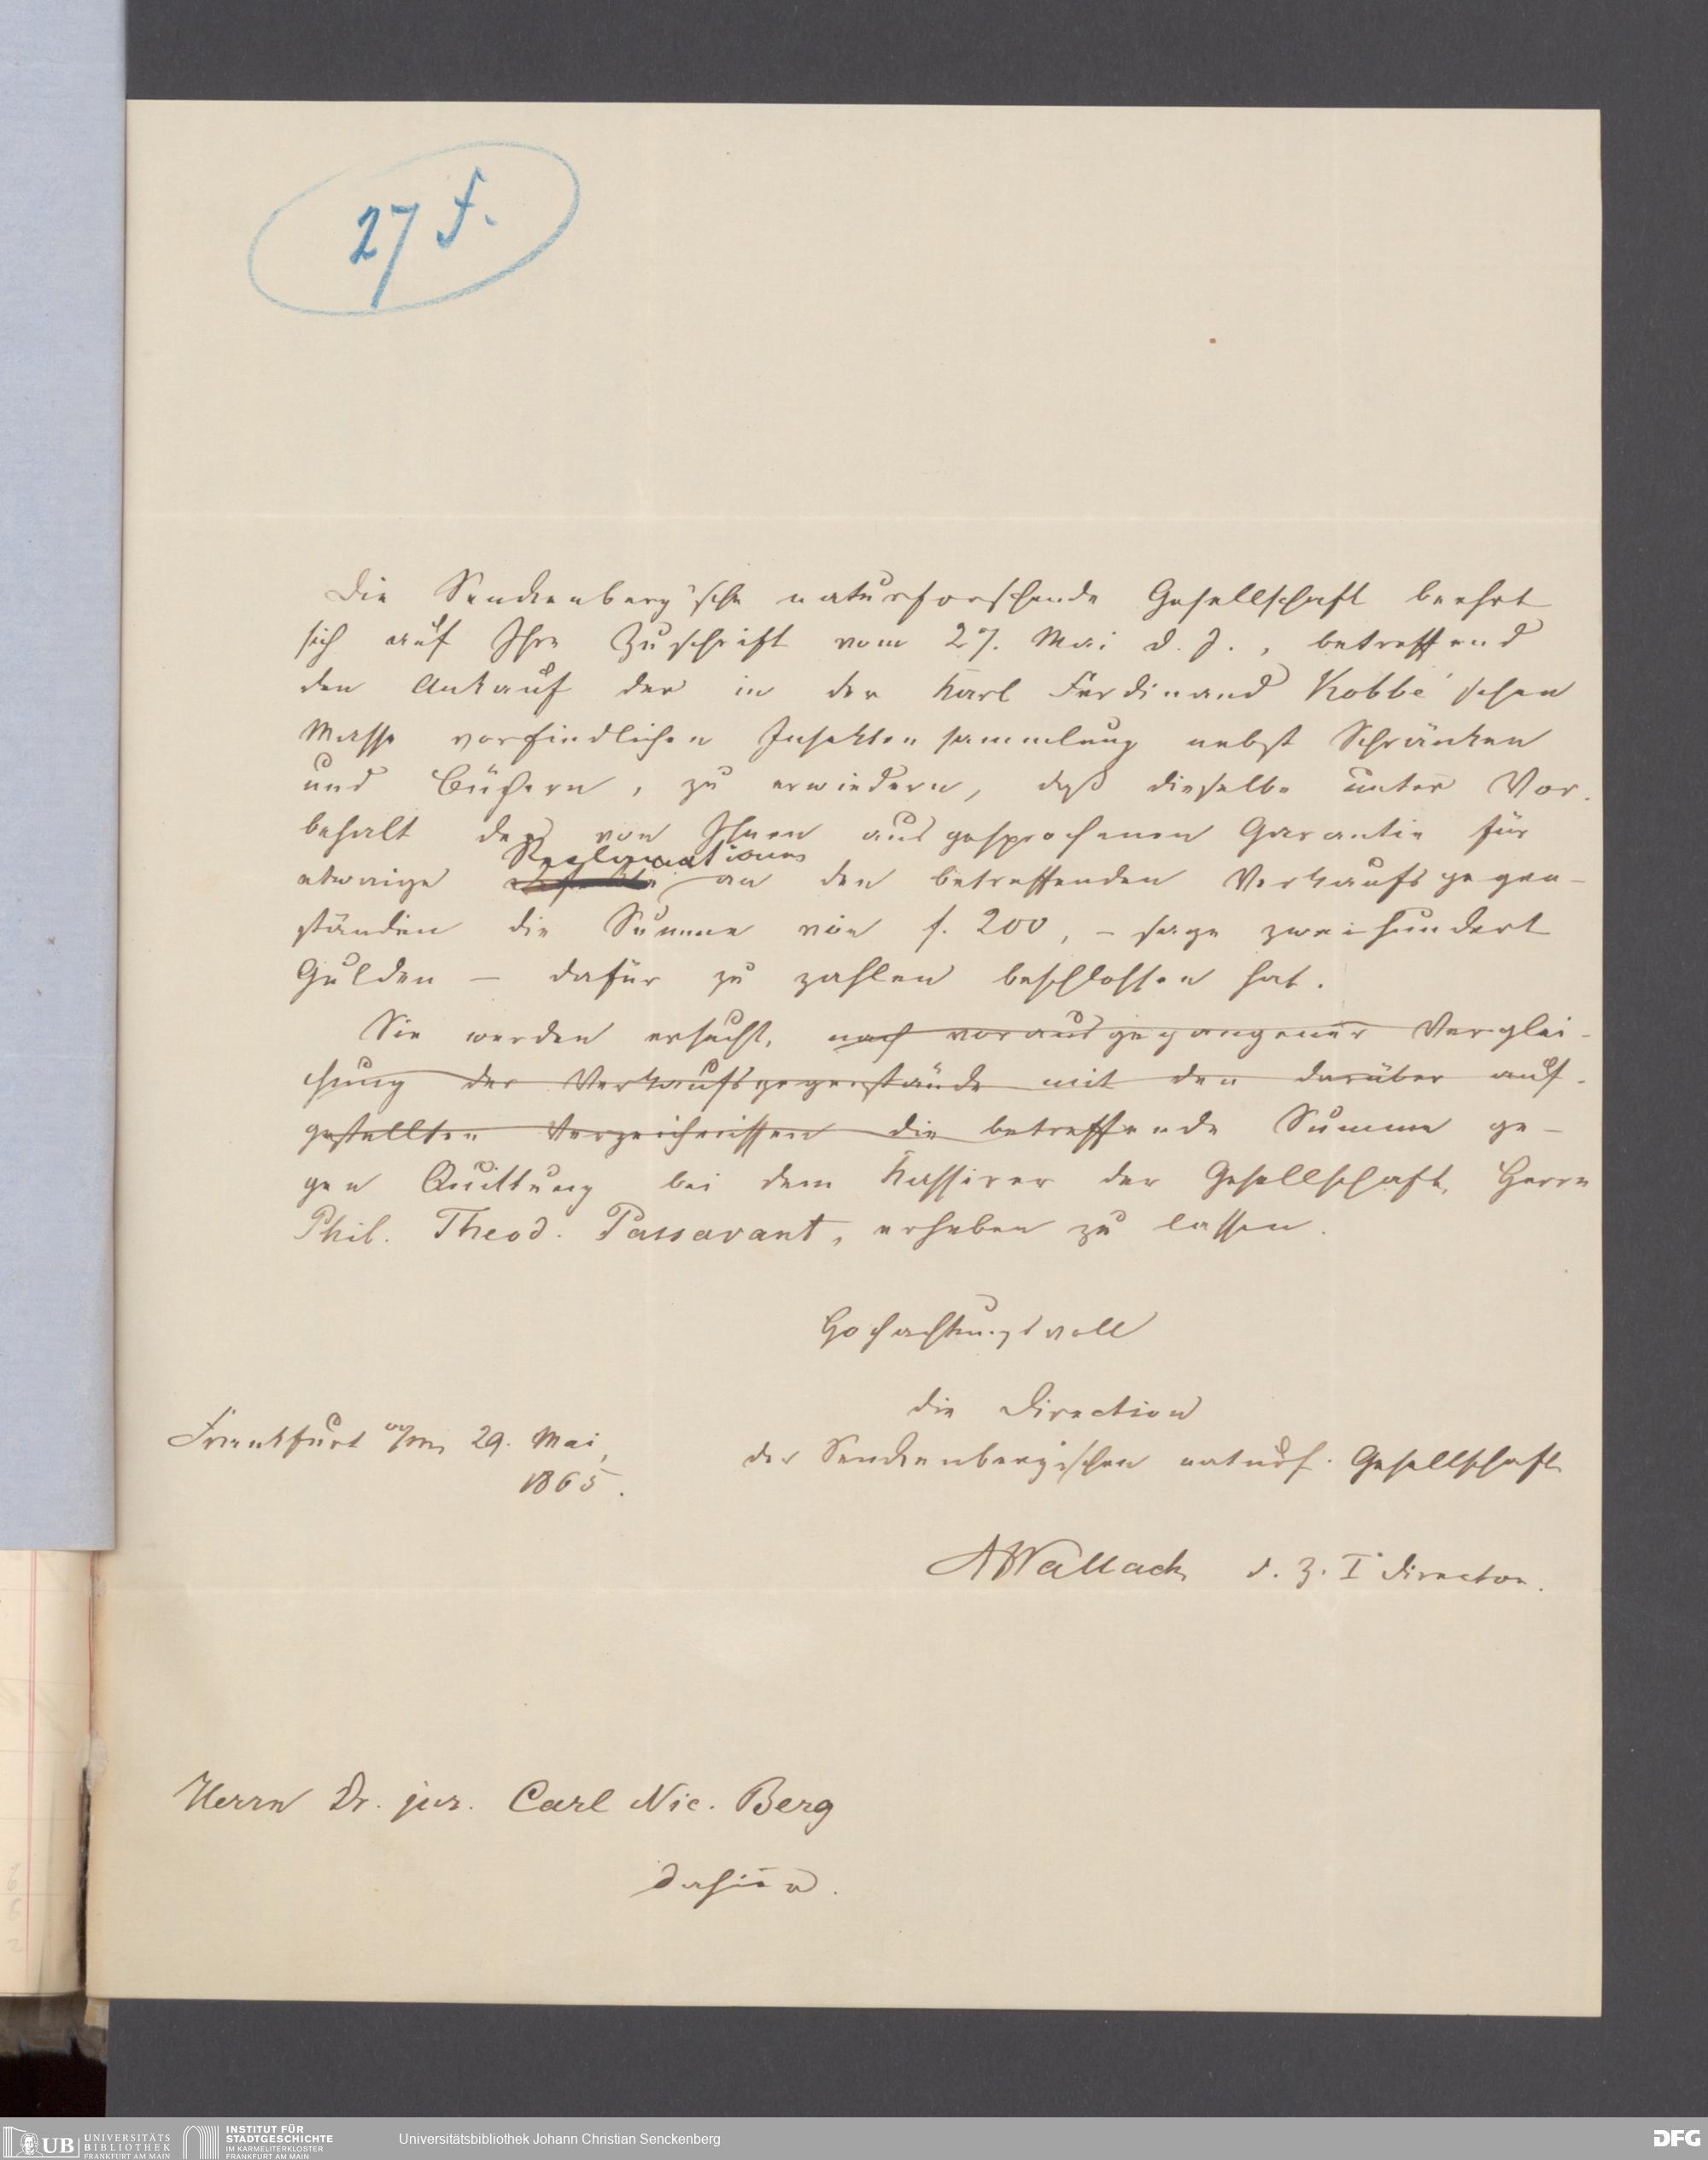 27 f.
Die Senckenberg'sche naturforschende Gesellschaft beehrt
sich auf Ihre Zuschrift vom 27. Mai d. J., betreffend
den Ankauf der in der Karl Ferdinand Kobbé'schen
Masse vorfindlichen Insektensammlung nebst Schränken
und Büchern, zu erwiedern, daß dieselbe unter Vor-
behalt der von Ihnen ausgesprochenen Garantie für
Reclamationen
etwaige an den betreffenden Verkaufsgegen-
ständen die Summe von f. 200, – sage zweihundert
Gulden – dafür zu zahlen beschlossen hat.
Sie werden ersucht, nach vorausgegangener Verglei-
chung der Verkaufsgegenstände mit den darüber auf-
gestellten Verzeichnissen die betreffende Summe ge-
gen Quittung bei dem Kassirer der Gesellschaft, Herrn
Phil. Theod. Passavant, erheben zu lassen.
Hochachtungsvoll
die Direction
Frankfurt a/m, 29. Mai,
der Senckenbergischen naturf. Gesellschaft
1865.
AWallach d. Z. I Director.
Herrn Dr. jur. Carl Nic. Berg
dahier.
UB UNIVERSITÄTS
BIBLIOTHEK
FRANKFURT AM MAIN
INSTITUT FÜR
STADTGESCHICHTE
IM KARMELITERKLOSTER
FRANKFURT AM MAIN
Universitätsbibliothek Johann Christian Senckenberg
DFG